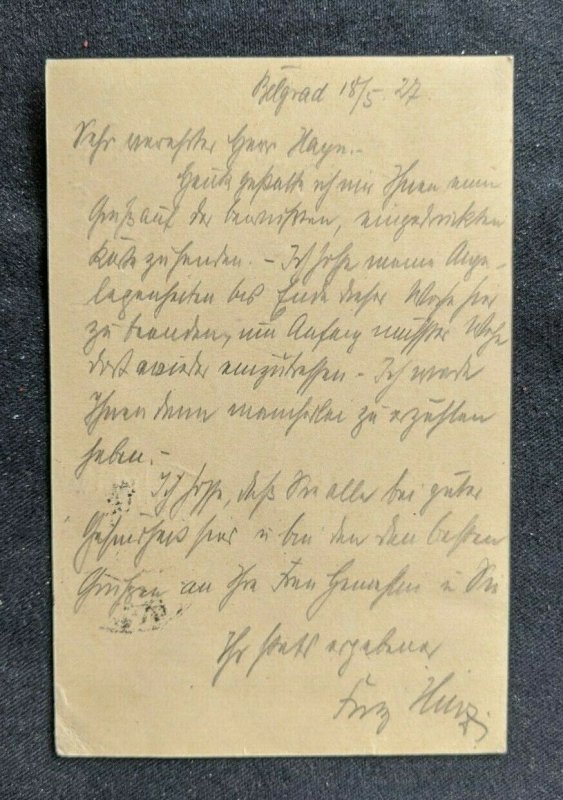 Belgrad 18/5. 27.
Sehr verehrter Herr Hayn.-
Heute gestatte ich mir Ihnen einen
Gruß aus der, eingedrückten
zu senden. - Ich hoffe meine Ange-
legenheiten bis Ende dieser Woche hier
zu beenden, um Anfang nächster Woche
dort wieder einzutreffen - Ich werde
Ihnen dann mancherlei zu erzählen
haben.-
Ich hoffe, daß Sie alle bei guter
Gesundheit sind u bin den besten
Grüßen an Ihre Frau Gemahlin u Sie
Ihr stets ergebener
Fritz